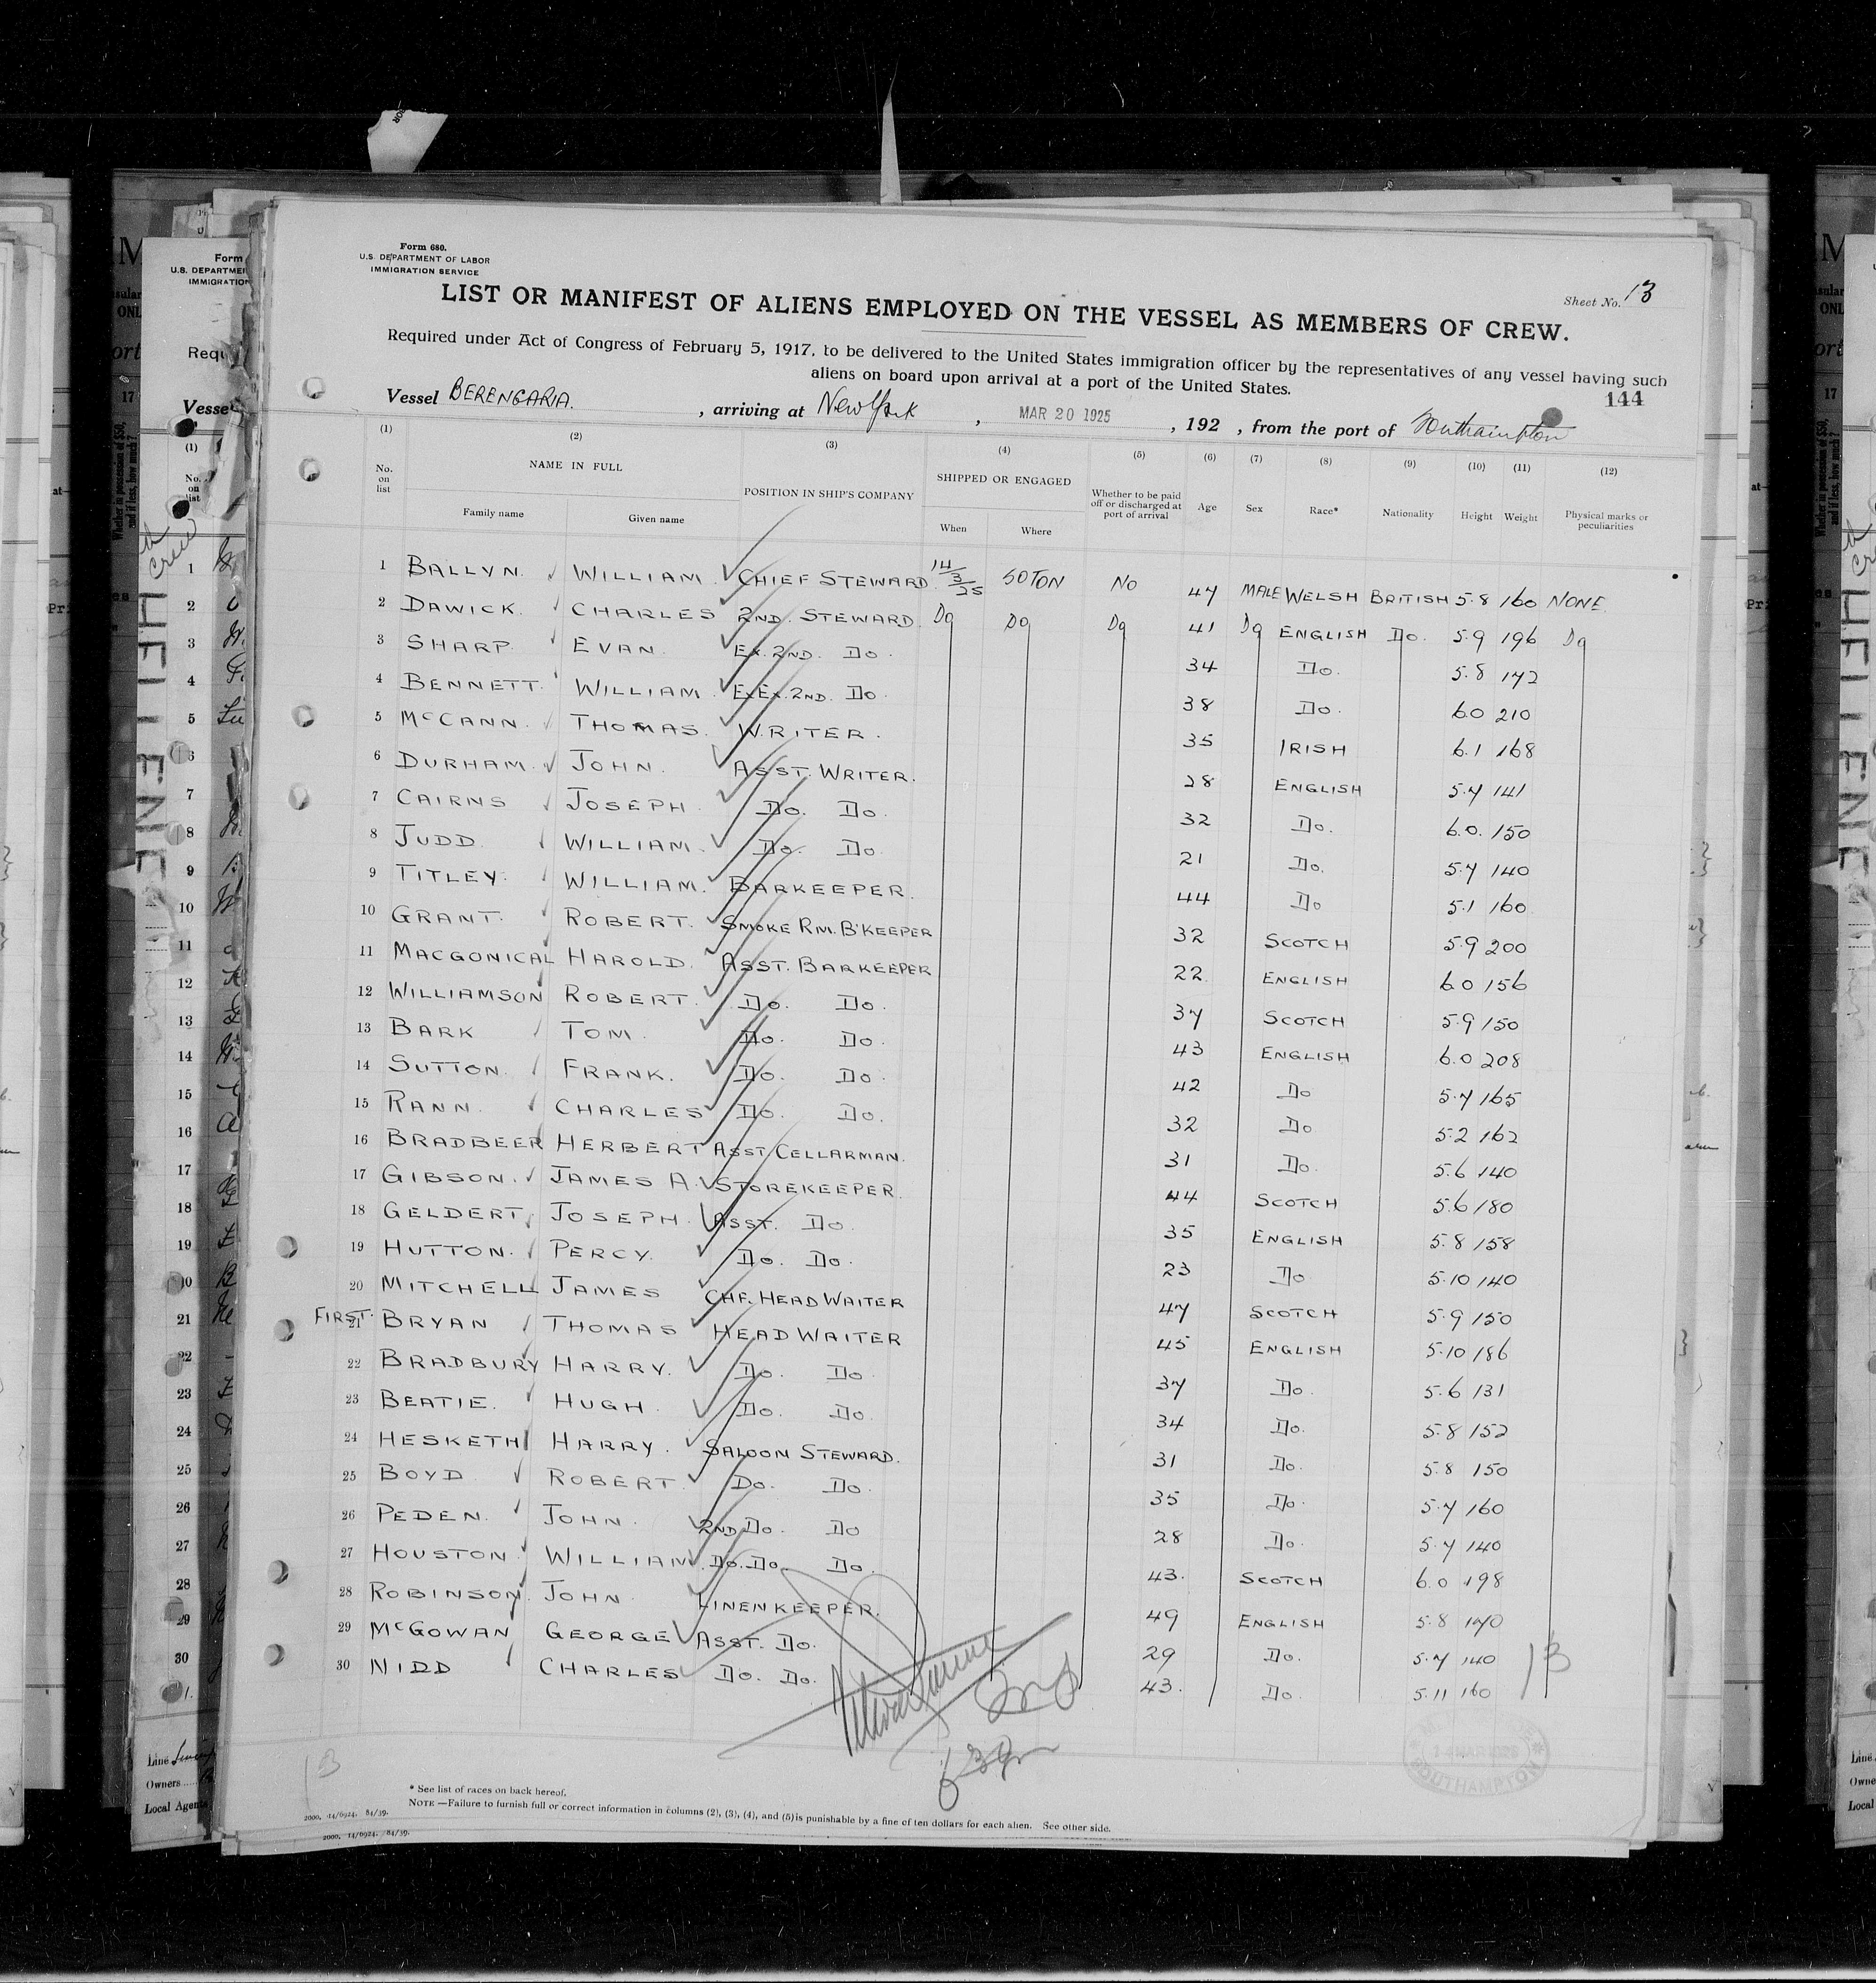 Form 680.
U.S. DEPARTMENT OF LABOR
IMMIGRATION SERVICE
Sheet No. 13
LIST OR MANIFEST OF ALIENS EMPLOYED ON THE VESSEL AS MEMBERS OF CREW.
Required under Act of Congress of February 5, 1917, to be delivered to the United States immigration officer by the representatives of any vessel having such
aliens on board upon arrival at a port of the United States.
144
Vessel BERENGARIA. , arriving at New York , MAR 20 1925 , 192 , from the port of Southampton
(1) (2) (3) (4) (5) (6) (7) (8) (9) (10) (11) (12)
No. on list NAME IN FULL Family name Given name POSITION IN SHIP'S COMPANY SHIPPED OR ENGAGED When Where Whether to be paid off or discharged at port of arrival Age Sex Race* Nationality Height Weight Physical marks or peculiarities
1 BALLYN. WILLIAM. CHIEF STEWARD. 14/3/25 SOTON NO 47 MALE WELSH BRITISH 5.8 160 NONE.
2 DAWICK. CHARLES 2ND. STEWARD. Do Do Do 41 Do ENGLISH Do. 5.9 196 Do
3 SHARP. EVAN. EX. 2ND. Do. 34 Do. 5.8 172
4 BENNETT. WILLIAM. EX.EX. 2ND. Do. 38 Do. 6.0 210
5 McCANN. THOMAS. WRITER. 35 IRISH 6.1 168
6 DURHAM. JOHN. ASST. WRITER. 28 ENGLISH 5.7 141
7 CAIRNS JOSEPH. Do. Do. 32 Do. 6.0. 150
8 JUDD. WILLIAM. Do. Do. 21 Do. 5.7 140
9 TITLEY. WILLIAM. BARKEEPER. 44 Do 5.1 160
10 GRANT. ROBERT. SMOKE RM. B'KEEPER 32 SCOTCH 5.9 200
11 MACGONICAL HAROLD. ASST. BARKEEPER 22 ENGLISH 6.0 156
12 WILLIAMSON ROBERT. Do. Do. 37 SCOTCH 5.9 150
13 BARK TOM. Do. Do. 43 ENGLISH 6.0 208
14 SUTTON. FRANK. Do. Do. 42 Do 5.7 165
15 RANN. CHARLES Do. Do. 32 Do 5.2 162
16 BRADBEER HERBERT ASST CELLARMAN. 31 Do. 5.6 140
17 GIBSON. JAMES A. STOREKEEPER. 44 SCOTCH 5.6 180
18 GELDERT. JOSEPH. ASST. Do. 35 ENGLISH 5.8 158
19 HUTTON. PERCY. Do. Do. 23 Do 5.10 140
20 MITCHELL JAMES CHF. HEAD WAITER 47 SCOTCH 5.9 150
FIRST. 21 BRYAN THOMAS HEAD WAITER 45 ENGLISH 5.10 186
22 BRADBURY HARRY. Do. Do 37 Do. 5.6 131
23 BEATIE. HUGH. Do. Do. 34 Do. 5.8 152
24 HESKETH HARRY. SALOON STEWARD. 31 Do. 5.8 150
25 BOYD ROBERT Do. Do. 35 Do. 5.7 160
26 PEDEN. JOHN. 2ND Do. Do 28 Do. 5.7 140
27 HOUSTON WILLIAM. Do. Do. Do. 43. SCOTCH 6.0 198
28 ROBINSON. JOHN LINENKEEPER. 49 ENGLISH 5.8 170
29 McGOWAN GEORGE ASST. Do. 29 Do. 5.7 140
30 NIDD CHARLES Do. Do. 43. Do. 5.11 160
13
13
14 MAR 1925
SOUTHAMPTON
* See list of races on back hereof.
NOTE —Failure to furnish full or correct information in columns (2), (3), (4), and (5) is punishable by a fine of ten dollars for each alien. See other side.
2000. 14/6924. 84/39.
2000. 14/6924. /84/39.